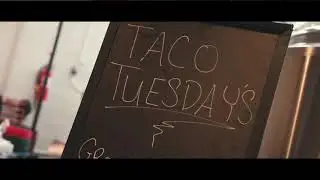 TACO
TUESDAY'S